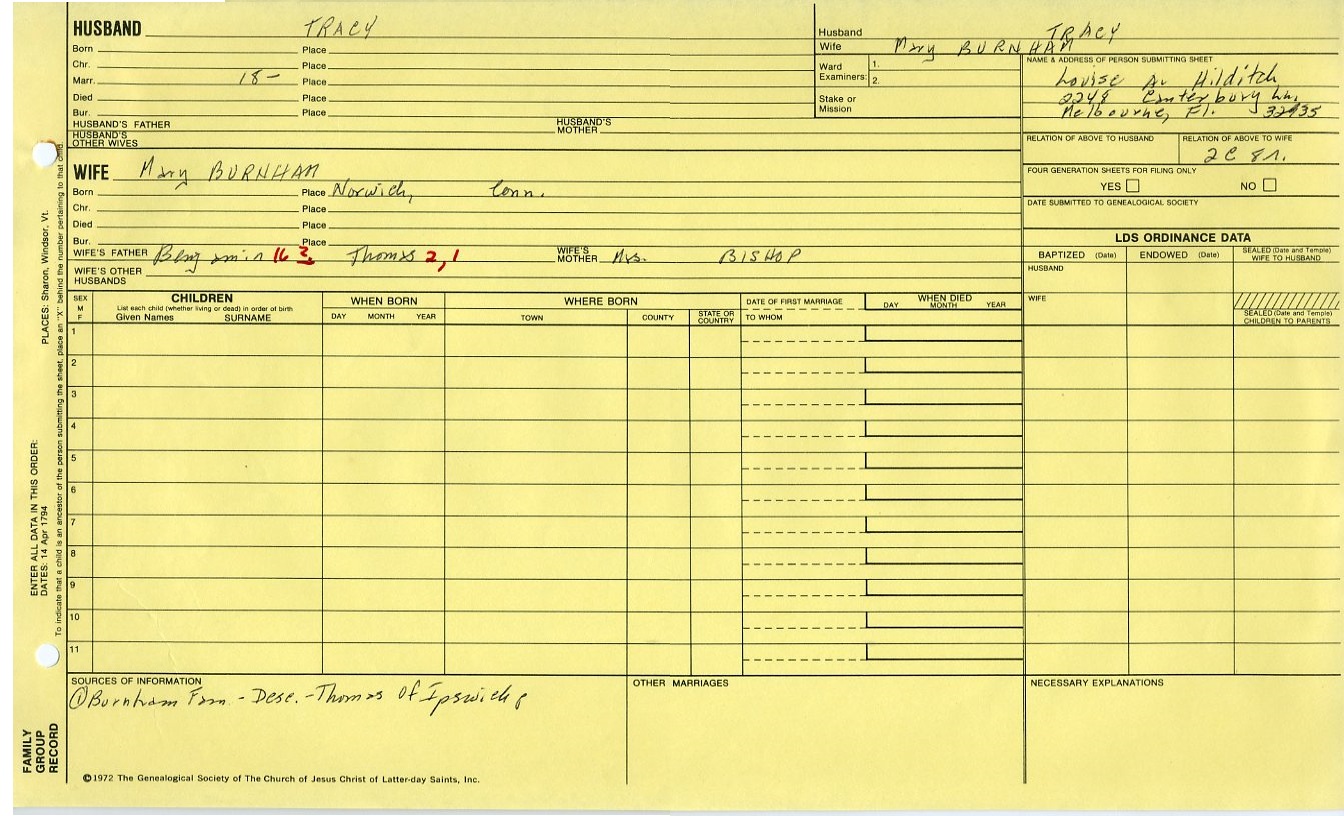 HUSBAND TRACY
Born Place
Chr. Place
Marr. 18- Place
Died Place
Bur. Place
HUSBAND'S FATHER HUSBAND'S MOTHER
HUSBAND'S OTHER WIVES
Husband TRACY
Wife Mary BURNHAM
Ward Examiners: 1.
2.
Stake or Mission
NAME & ADDRESS OF PERSON SUBMITTING SHEET
Louise A. Hilditch
2248 Canterbury Ln.
Melbourne, Fl. 32935
RELATION OF ABOVE TO HUSBAND RELATION OF ABOVE TO WIFE
2C 8r.
FOUR GENERATION SHEETS FOR FILING ONLY
YES NO
DATE SUBMITTED TO GENEALOGICAL SOCIETY
WIFE Mary BURNHAM
Born Place Norwich, Conn.
Chr. Place
Died Place
Bur. Place
WIFE'S FATHER Benjamin 16 3, Thomas 2,1 WIFE'S MOTHER Mrs. BISHOP
WIFE'S OTHER HUSBANDS
LDS ORDINANCE DATA
BAPTIZED (Date) ENDOWED (Date) SEALED (Date and Temple) WIFE TO HUSBAND
HUSBAND
WIFE
SEALED (Date and Temple) CHILDREN TO PARENTS
SEX M F
CHILDREN
List each child (whether living or dead) in order of birth
Given Names SURNAME
WHEN BORN
DAY MONTH YEAR
WHERE BORN
TOWN COUNTY STATE OR COUNTRY
DATE OF FIRST MARRIAGE
TO WHOM
WHEN DIED
DAY MONTH YEAR
1
2
3
4
5
6
7
8
9
10
11
SOURCES OF INFORMATION
① Burnham Fam. - Desc. - Thomas Of Ipswich
OTHER MARRIAGES
NECESSARY EXPLANATIONS
©1972 The Genealogical Society of The Church of Jesus Christ of Latter-day Saints, Inc.
FAMILY GROUP RECORD
ENTER ALL DATA IN THIS ORDER:
DATES: 14 Apr 1794 PLACES: Sharon, Windsor, Vt.
To indicate that a child is an ancestor of the person submitting the sheet, place an "X" behind the number pertaining to that child.